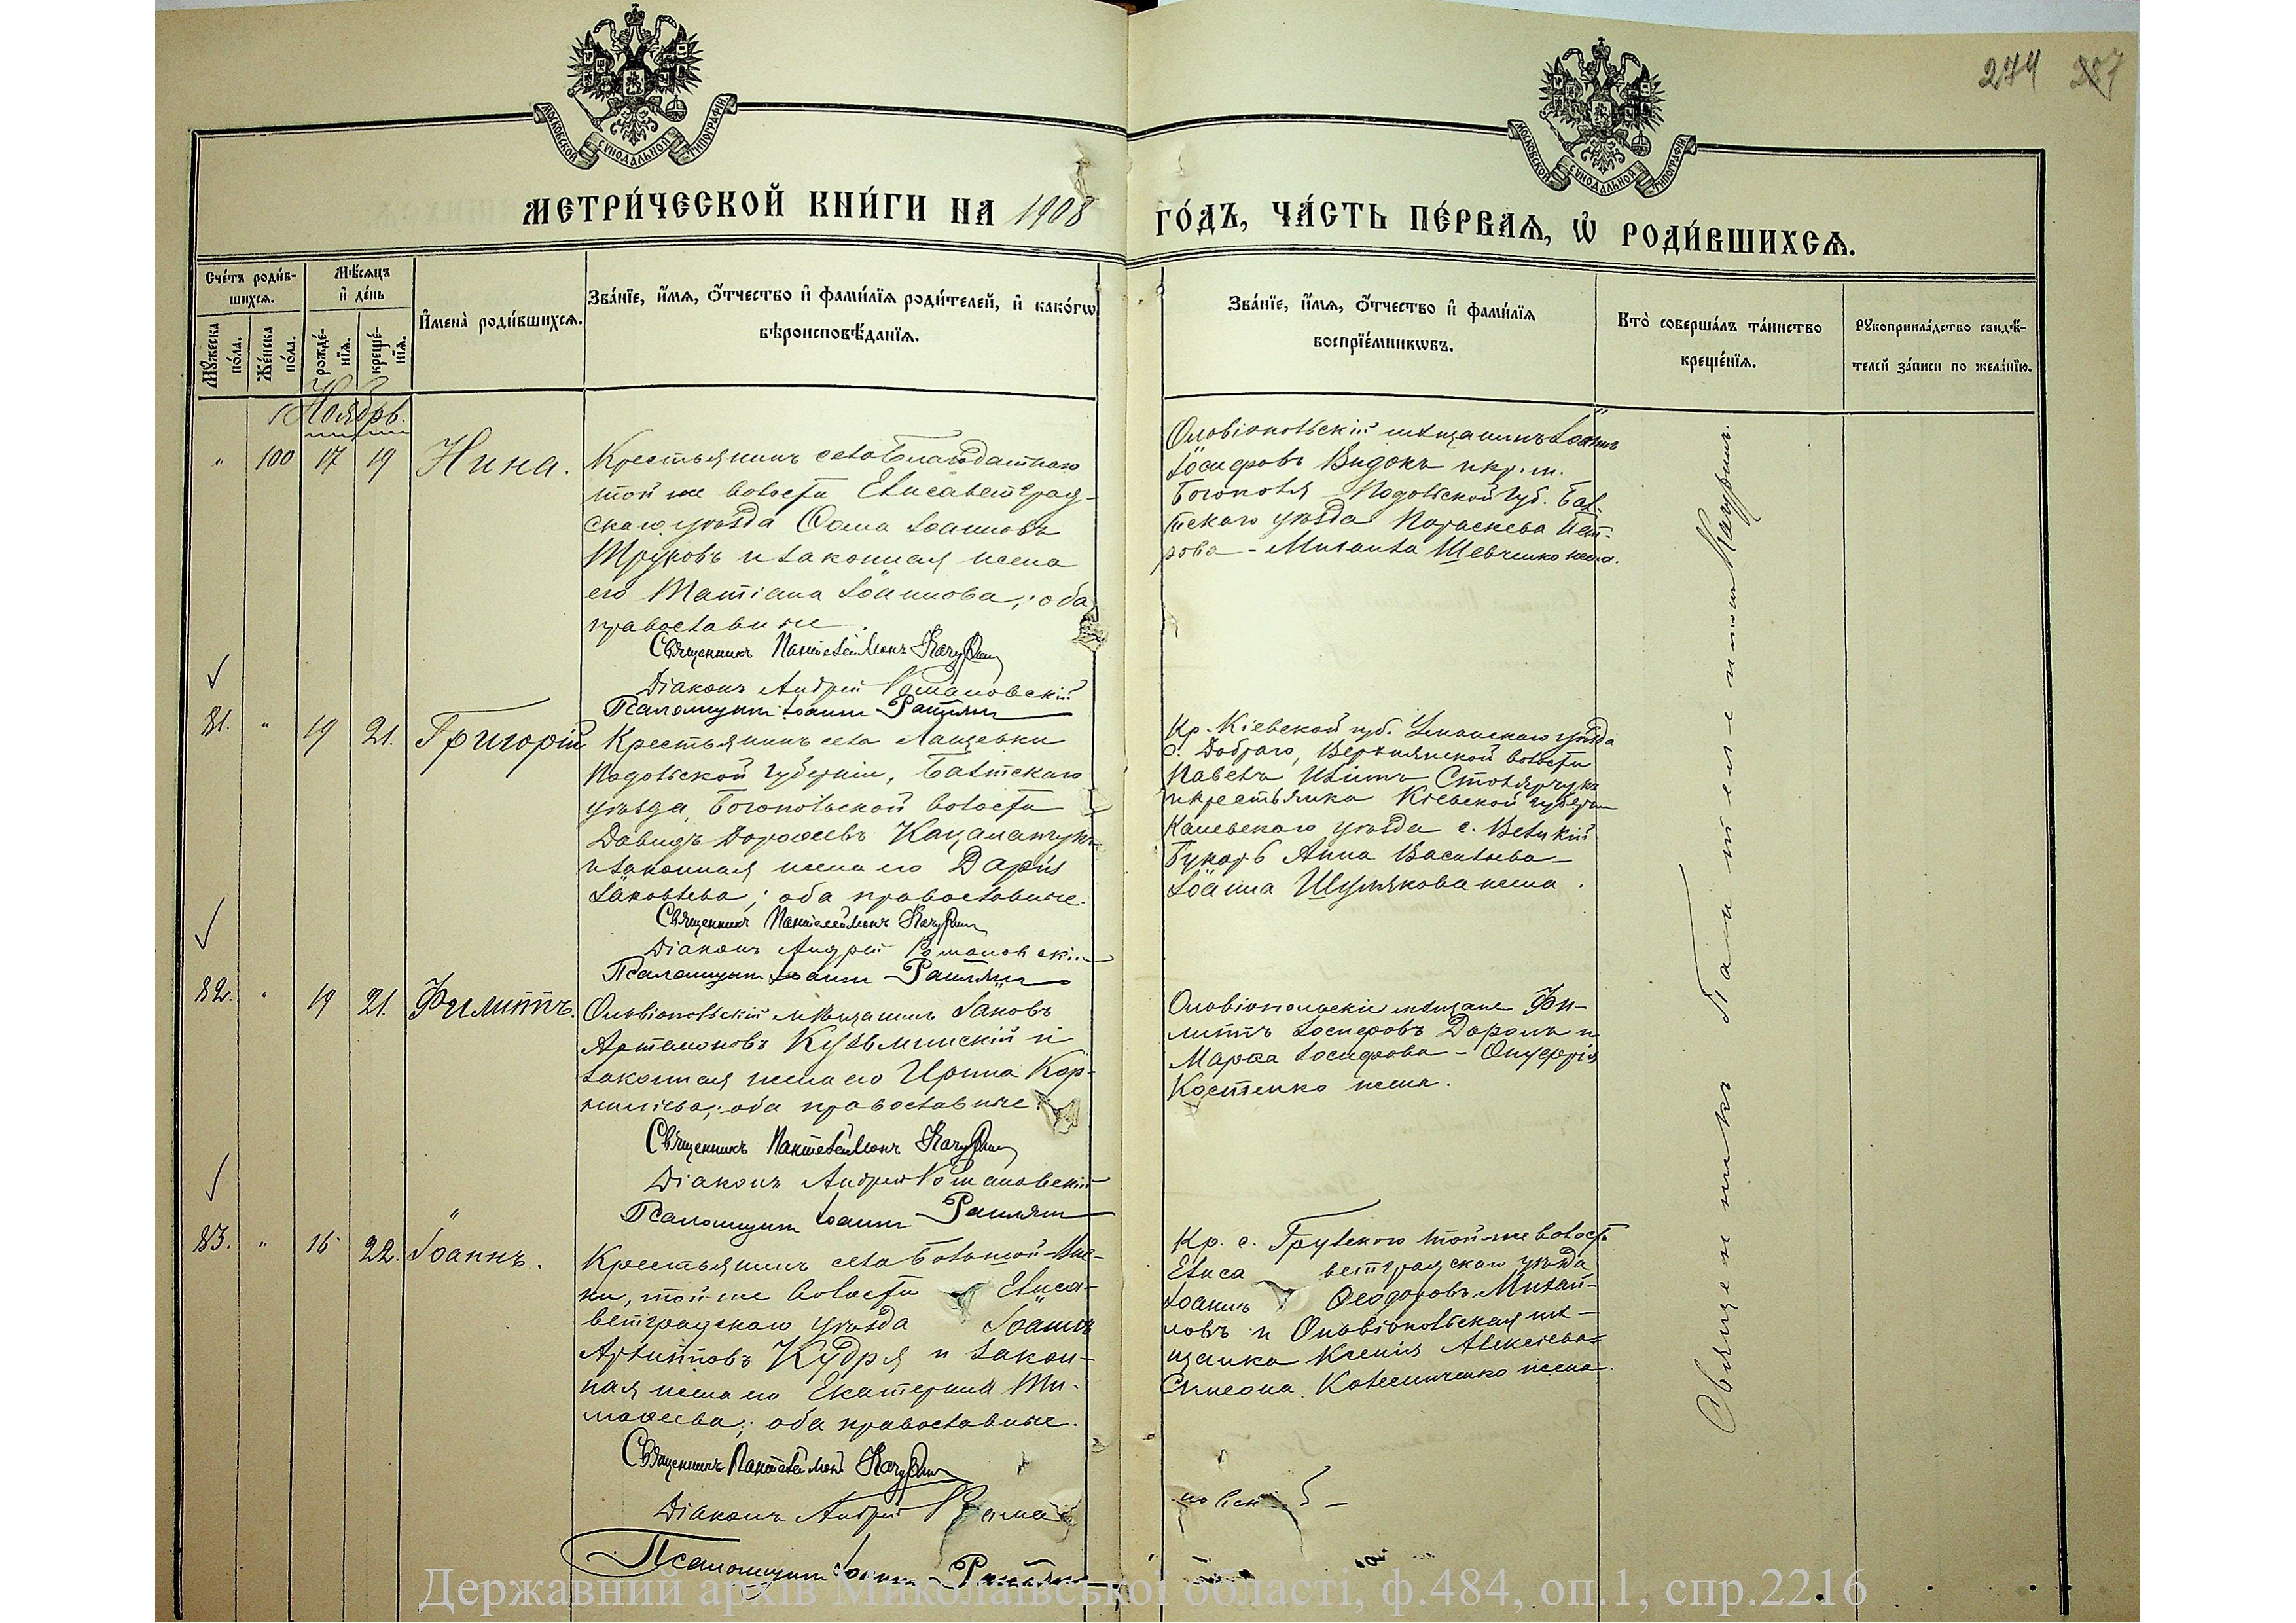 274 287
МОСКОВСКОЙ СѴНОДАЛЬНОЙ ТИПОГРАФІИ
МОСКОВСКОЙ СѴНОДАЛЬНОЙ ТИПОГРАФІИ
МЕТРИ́ЧЕСКОЙ КНИ́ГИ НА 1908
ГО́ДЪ, ЧА́СТЬ ПЕ́РВАѦ, Ѡ҆ РОДИ́ВШИХСѦ.
Сче́тъ роди́в-
шихсѧ.
Мѣ́сѧцъ
и҆ де́нь
Мꙋ́жеска
по́ла.
Же́нска
по́ла.
рожде́-
нїѧ.
креще́-
нїѧ.
И҆мена̀ роди́вшихсѧ.
Зва́нїе, и҆́мѧ, ѻ҆́тчество и҆ фами́лїѧ роди́телей, и҆ како́гѡ
вѣроисповѣ́данїѧ.
Зва́нїе, и҆́мѧ, ѻ҆́тчество и҆ фами́лїѧ
воспрїе́мникѡвъ.
Кто̀ соверша́лъ та́инство
креще́нїѧ.
Рꙋкоприкла́дство свидѣ́-
телей за́писи по жела́нїю.
Ноябрь.
" 100 17 19 Нина.
Крестьянинъ села Благодатнаго
той же волости Елисаветград-
скаго уѣзда Ѳома Іоанновъ
и законная жена
его Татіана Іоаннова; оба
православные.
Священникъ Пантелеймонъ
Діаконъ Андрей Романовскій
Псаломщикъ Іоаннъ
Ольвіопольскій мѣщанинъ Іоаннъ
Іосифовъ Видокъ и кр. м.
Богополя Подольской губ. Бал-
тскаго уѣзда Параскева Пет-
рова - Михаила Шевченко жена.
81. " 19 21. Григорій
Крестьянинъ села Лащевки
Подольской губерніи, Балтскаго
уѣзда, Богопольской волости
Давидъ Дороѳеевъ
и законная жена его Дарія
Іаковлева; оба православные.
Священникъ Пантелеймонъ
Діаконъ Андрей Романовскій
Псаломщикъ Іоаннъ
Кр. Кіевской губ. Уманскаго уѣзда
с. Добраго, волости
Павелъ Столярчукъ
и крестьянка Кіевской губерніи
Каневскаго уѣзда с. Великій
Букаръ Анна Васильева -
Іоанна жена.
82. " 19 21. Филиппъ.
Ольвіопольскій мѣщанинъ Іаковъ
Артамоновъ Кузьминскій и
законная жена его Ирина Кор-
ниліева; оба православные.
Священникъ Пантелеймонъ
Діаконъ Андрей Романовскій
Псаломщикъ Іоаннъ
Ольвіопольскіе мѣщане Фи-
липпъ Іосифовъ и
Марѳа Іосифова - Онуфрія
Костенко жена.
83. " 16 22. Іоаннъ.
Крестьянинъ села Большой-Вис-
ки, той-же волости Елиса-
ветградскаго уѣзда Іоаннъ
Архипповъ Кудря и закон-
ная жена его Екатерина Ти-
моѳеева; оба православные.
Священникъ Пантелеймонъ
Діаконъ Андрей Романовскій
Псаломщикъ Іоаннъ
Кр. с. Грузскаго той-же волости
Елисаветградскаго уѣзда
Іоаннъ Ѳеодоровъ Михай-
ловъ и Ольвіопольская мѣ-
щанка Ксенія Алексіева -
Симеона Колесниченко жена.
Священникъ Пантелеймонъ
Державний архів Миколаївської області, ф.484, оп.1, спр.2216